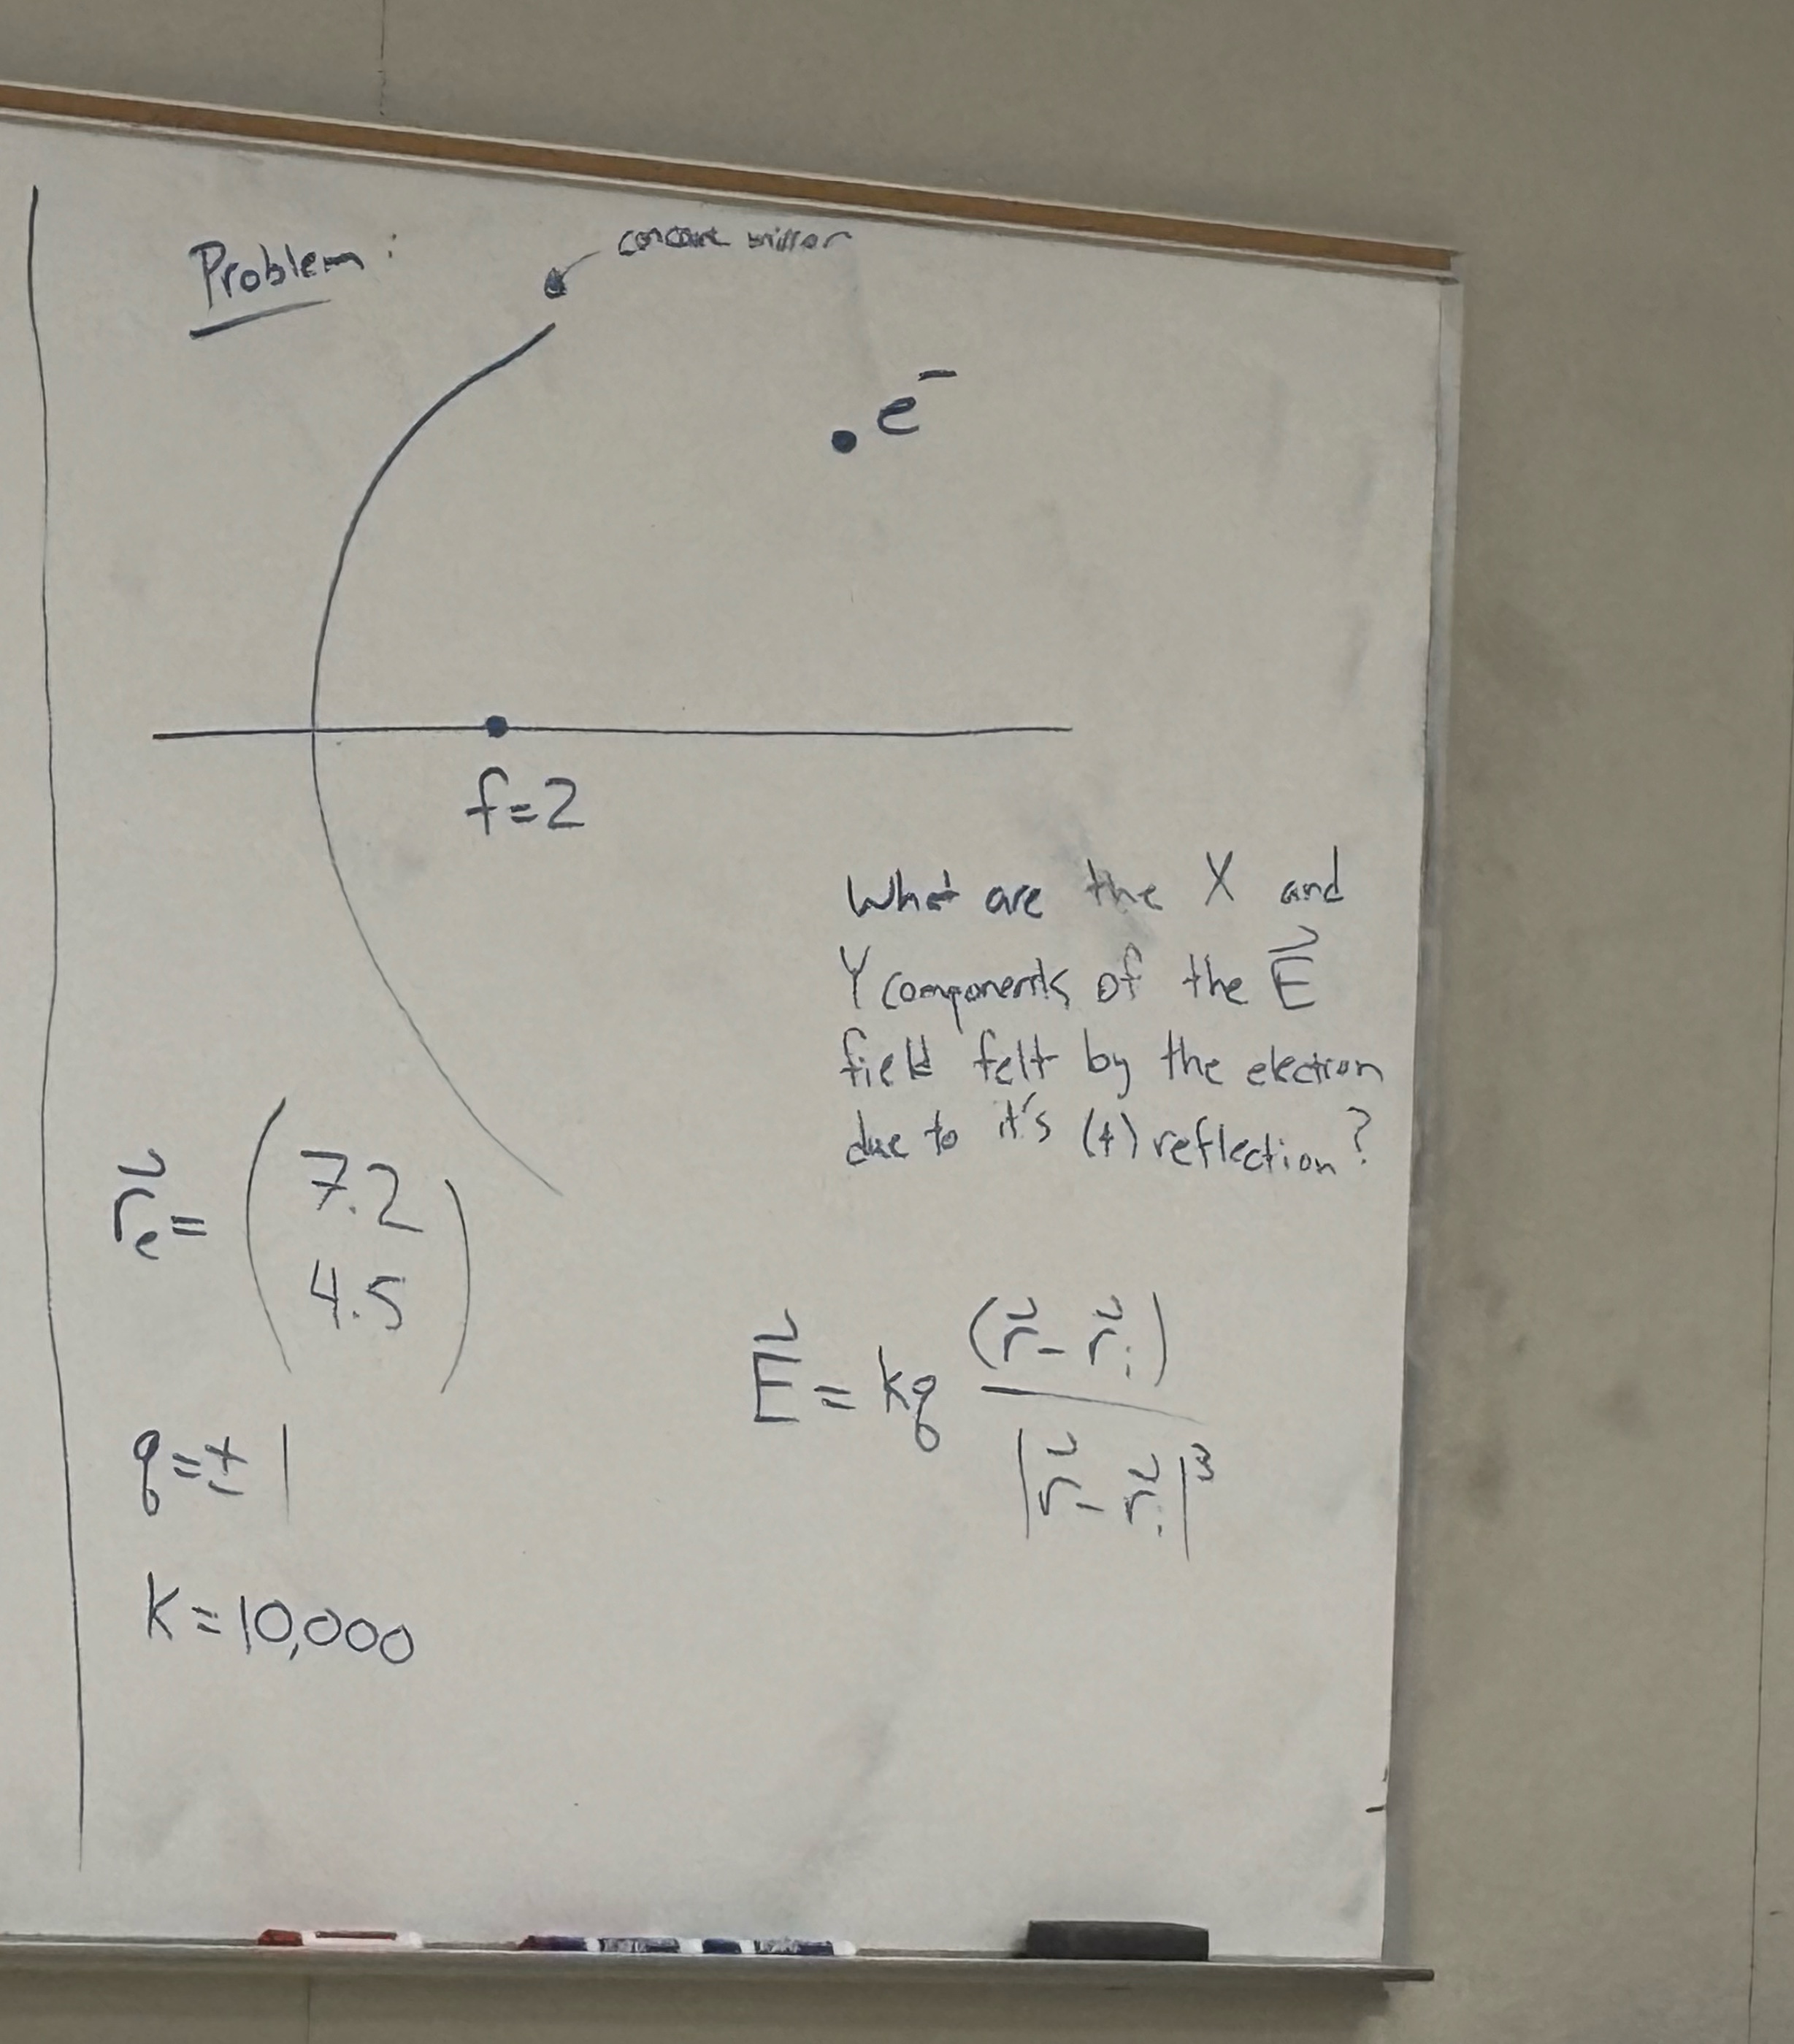 Problem:
concave mirror
e⁻
f=2
What are the X and
Y components of the E⃗
field felt by the electron
due to it's (+) reflection?
r⃗e = (7.2
4.5)
q=±1
E⃗ = kq (r⃗ - r⃗i)
|r⃗ - r⃗i|³
K=10,000